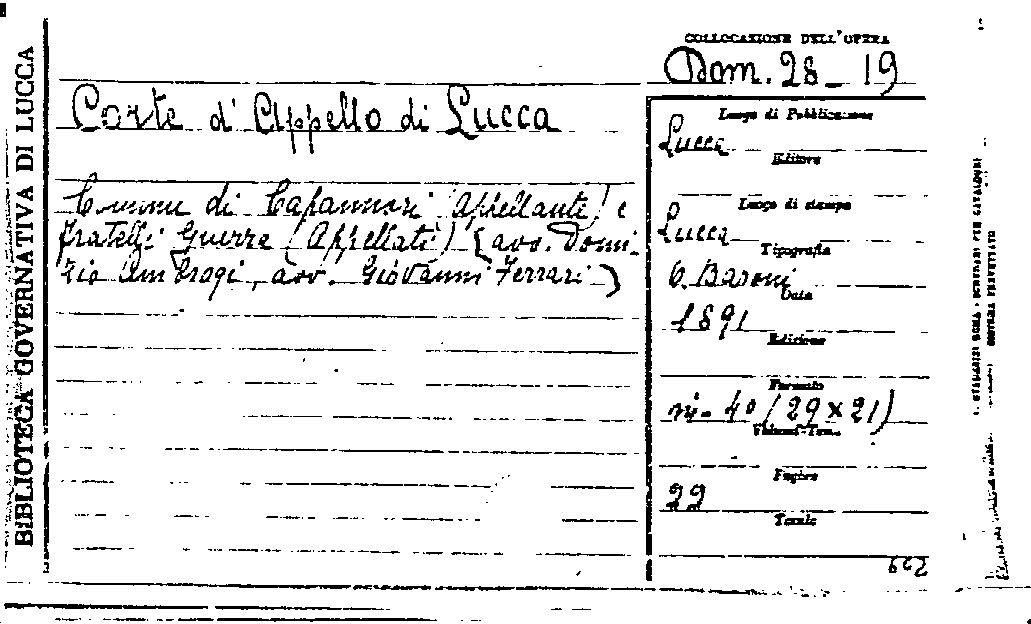 BIBLIOTECA GOVERNATIVA DI LUCCA
COLLOCAZIONE DELL'OPERA
Dom. 28 - 19
Corte d'Appello di Lucca
Comune di Capannori (Appellante) e
fratelli Guerra (Appellati) (avv. Domi-
zio Ambrogi, avv. Giovanni Ferrari)
Luogo di Pubblicazione
Lucca
Editore
Luogo di stampa
Lucca
Tipografia
Baroni
Data
1891
Edizione
Formato
in-4° (29 x 21)
Volumi-Tom.
Pagine
22
Tavole